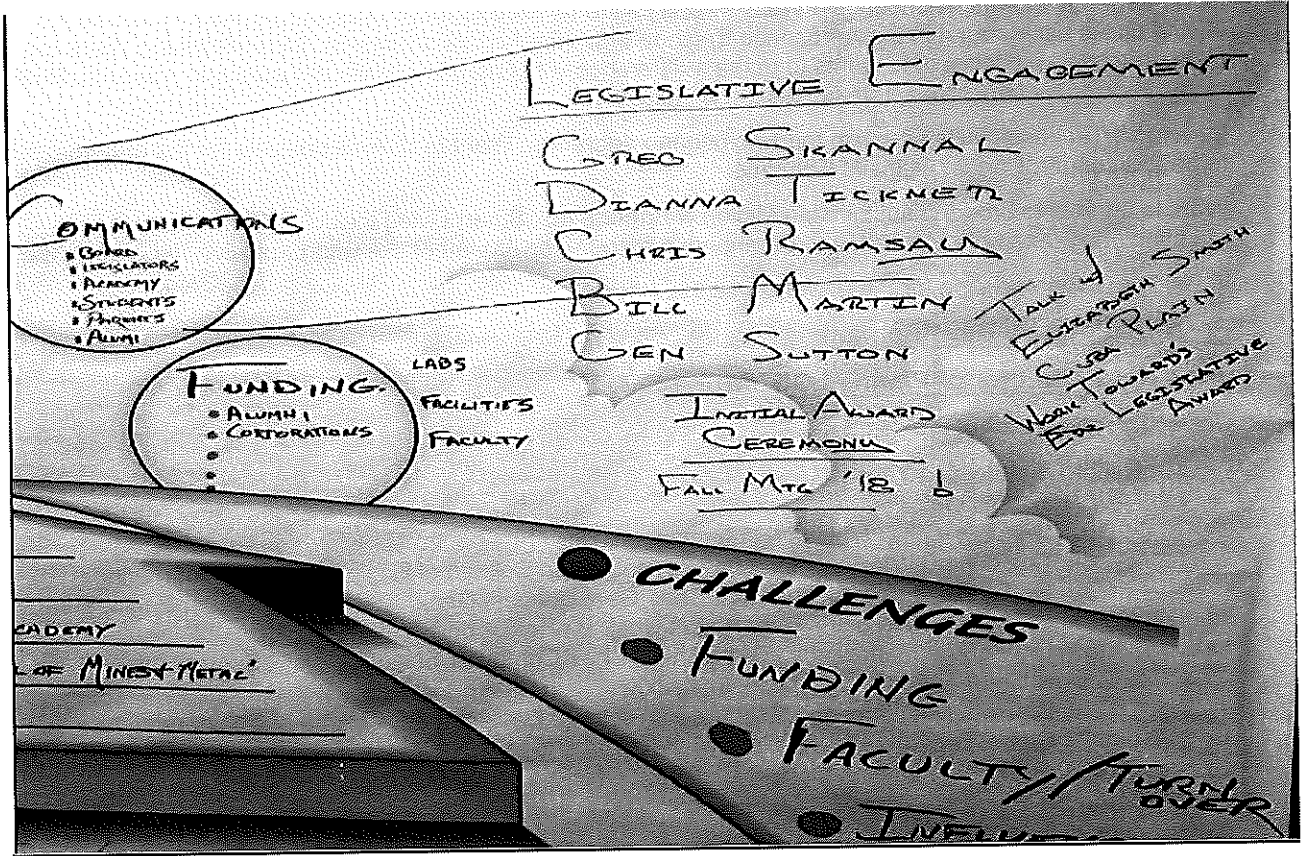 LEGISLATIVE ENGAGEMENT
GREG SKANNAL
DIANNA TICKNER
CHRIS RAMSAY
BILL MARTIN
GEN SUTTON
INITIAL AWARD
CEREMONY
FALL MTG '18 !
TALK
ELIZABETH SMITH
CUBA PLAIN
WORK TOWARD'S
FOR LEGISLATIVE
AWARD
COMMUNICATIONS
• BOARD
• LEGISLATORS
• ACADEMY
• STUDENTS
• PARENTS
• ALUMI
FUNDING.
• ALUMNI
• CORPORATIONS
LABS
FACILITIES
FACULTY
CADEMY
L OF MINES & METAL'
• CHALLENGES
• FUNDING
• FACULTY/TURN
OVER